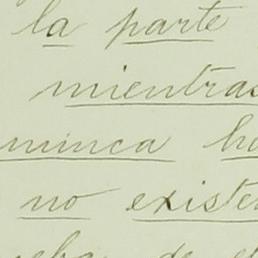 la parte
mientras
nunca ha
no existen
de